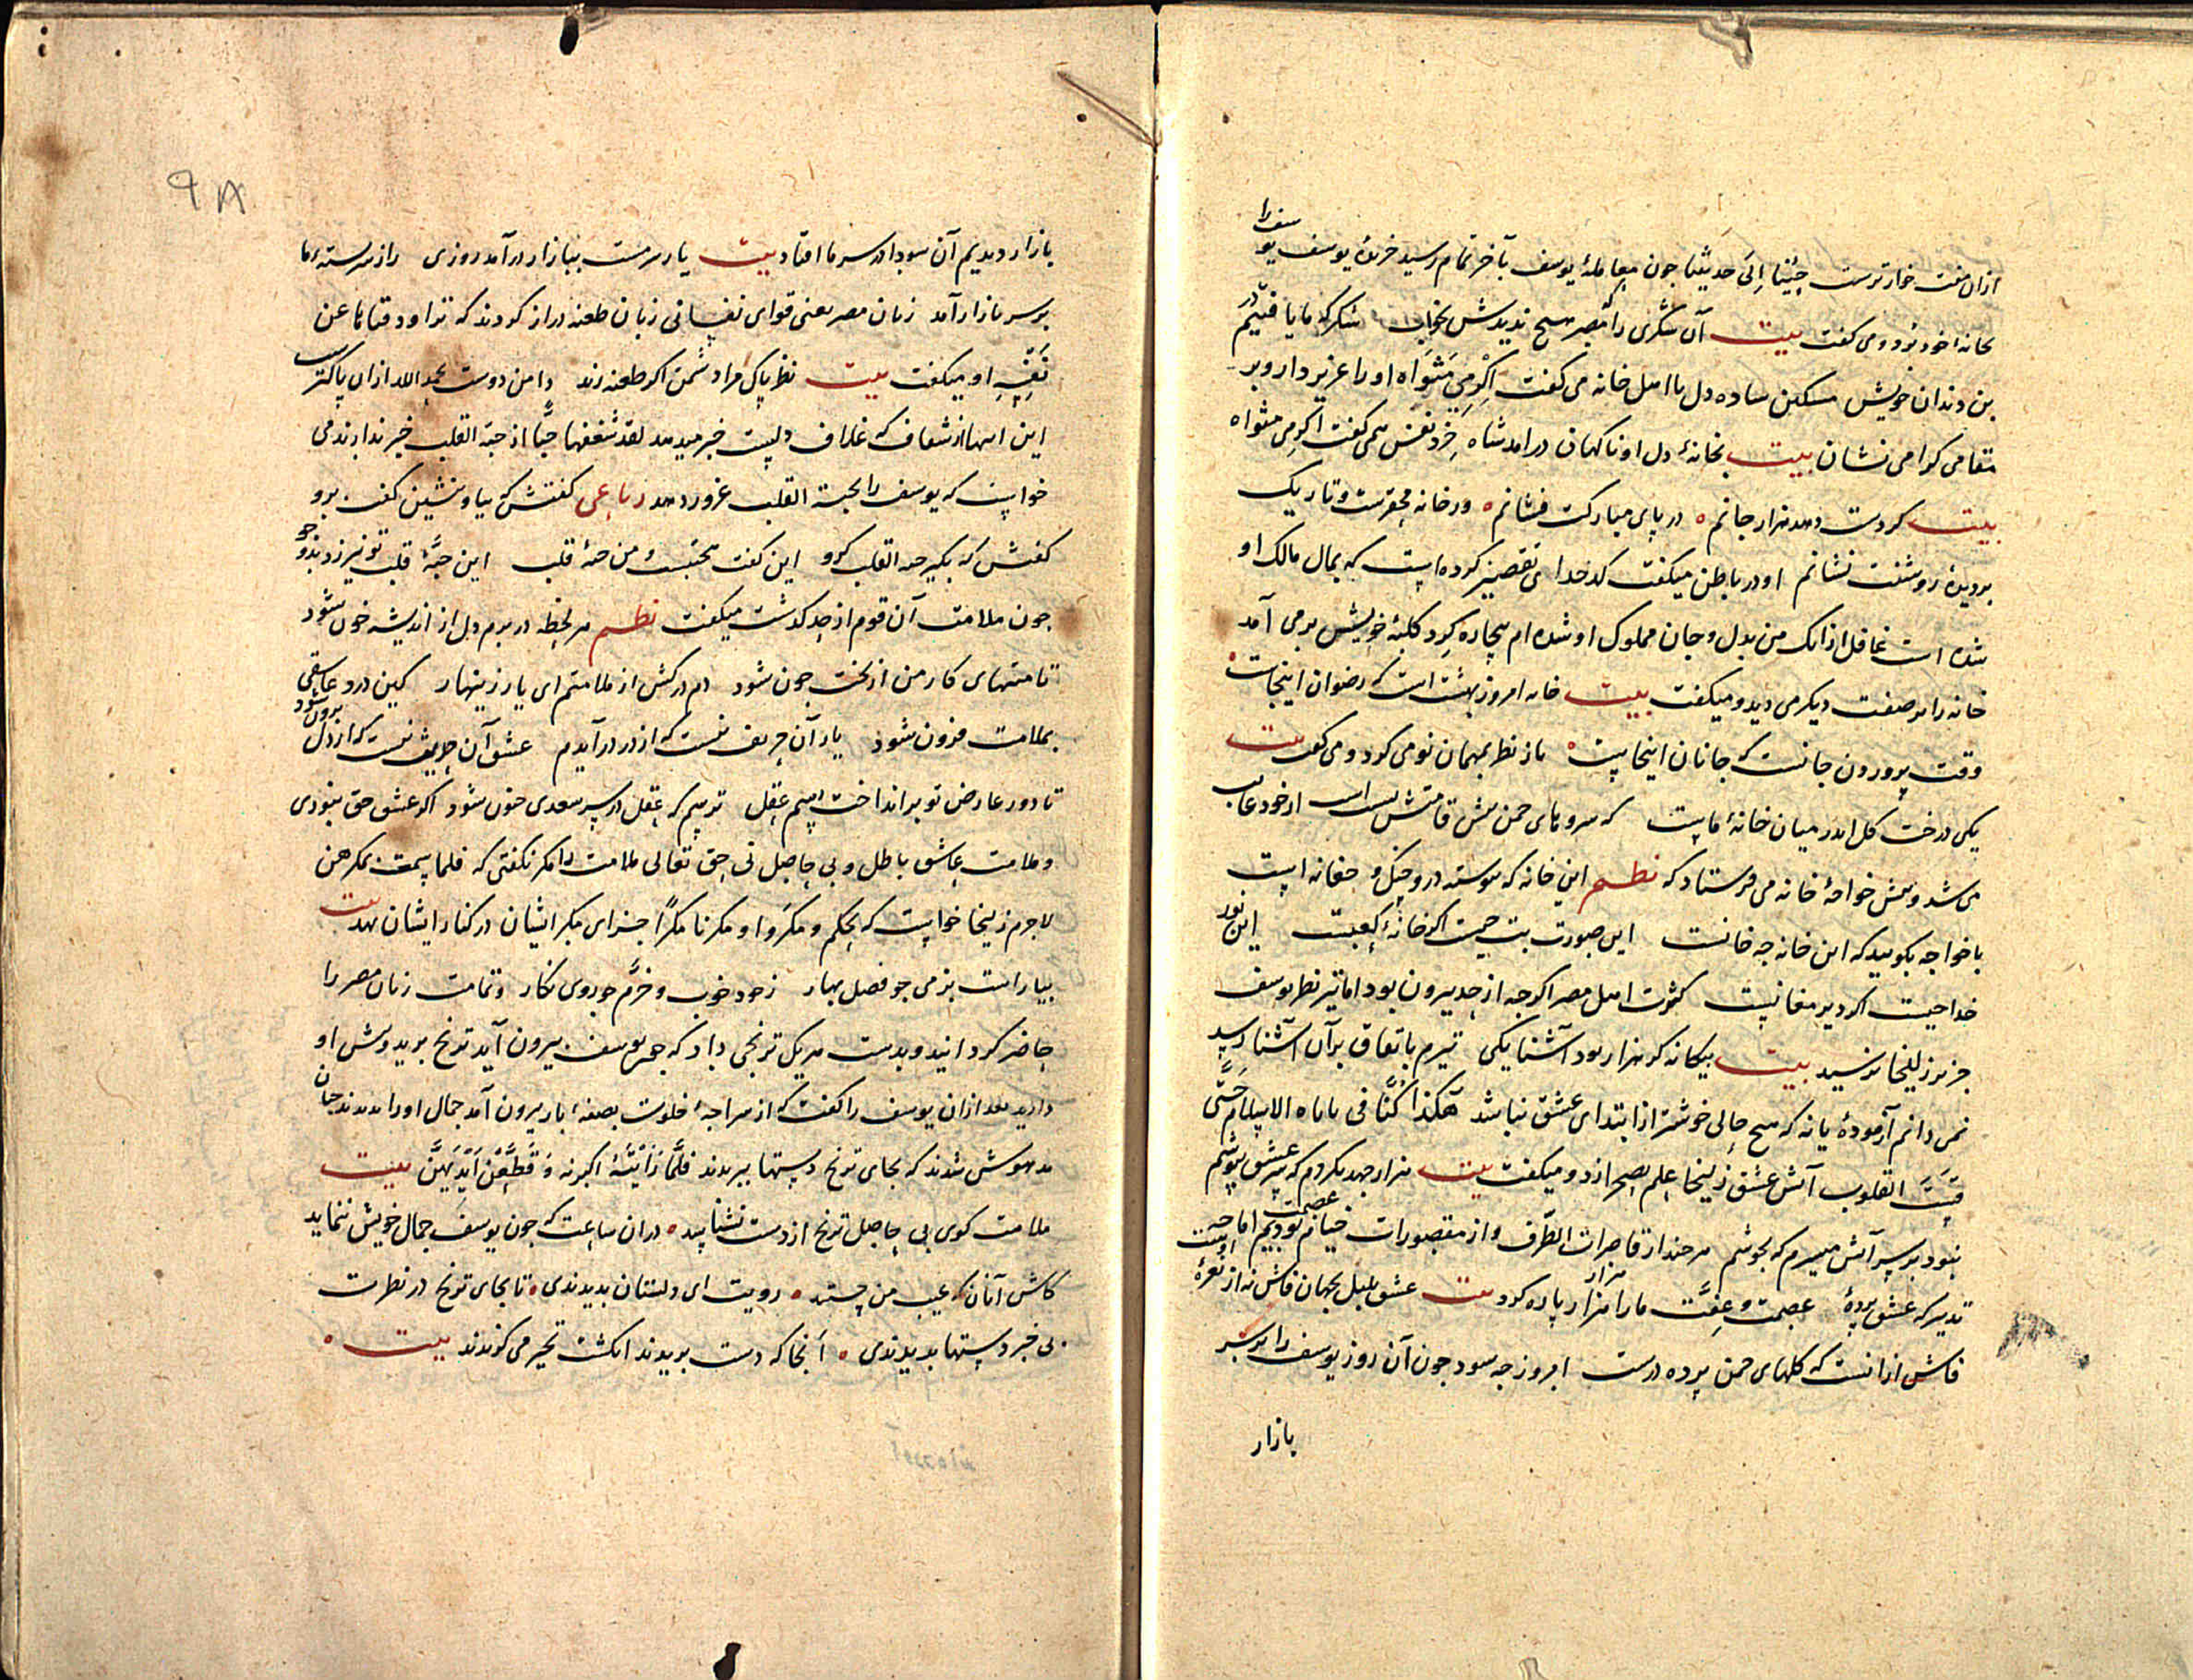 ازان مفت خوارترست جِئنا اِلیٰ حدیثنا چون معاملهٔ یوسف بآخر تمام رسید خرندهٔ یوسف یوسف را
بخانهٔ خود برد و می گفت بیت آن شکری را که مصر هیچ ندیدش بخواب شکر که ما یافتیم در
بن دندان خویش مسکین ساده دل با اهل خانه می گفت اَکْرِمِی مَثْوَاه او را عزیز دار و بر
مقامی گرامی نشان بیت بخانهٔ دل او ناگهان درامد شاه خِرَد بَنفس همی گفت اکرمی مثواه
بیت گر دست دهد هزار جانم ٥ در پای مبارکت فشانم ٥ ور خانه محقرست و تاریک
بر دیدهٔ روشنت نشانم او در باطن میگفت کدخدا می تقصیر کرده است که بمال مالک او
شده است غافل ازانک من بدل و جان مملوک او شده ام بیچاره گرد کلبهٔ خویش برمی آمد
خانه را بر صفت دیگر می دید و میگفت بیت خانه امروز بهشت است که رضوان اینجاست
وقت پروردن جانست که جانان اینجاست ٥ باز نظر بمهمان نو می کرد و می گفت بیت
یکی درخت گل اندر میان خانهٔ ماست که سروهای چمن پیش قامتش پست است از خود غایب
می شد و پیش خواجهٔ خانه می فرستاد که نظم این خانه که پیوسته درو چنگ و چغانه است
با خواجه بگویید که این خانه چه خانست این صورت بت چیست اگر خانهٔ کعبست این نور
خدا چیست اگر دیر مغانیست کثرت اهل مصر اگرچه از حد بیرون بود اما تیر نظر یوسف
جز بر زلیخا نرسید بیت بیگانه گر هزار بود آشنا یکی تیرم باتفاق بران آشنا رسید
نمی دانم آزمودهٔ یا نه که هیچ حالی خوشتر از ابتدای عشق نباشد هٰکذا کُنّا فی الاسلام حَتّی
قَسَتَ القلوب آتش عشق زلیخا علم بصحرا زد و میگفت بیت هزار جهد بکردم که سر عشق بپوشم
نبود بر سر آتش میسرم که بجوشم هرچند از قاصرات الطرف و از مقصورات خیام عصمت بودیم اما چیست
تدبیر که عشق پردهٔ عصمت و عِفّت ما را هزار هزار پاره کرد بیت عشق بلبل بجهان فاش نه از نعرهٔ اوست
فاش ازانست که گلهای چمن پرده درست امروز چه سود چون آن روز یوسف را بر سر
بازار
٩٨
بازار دیدیم آن سودا در سر ما افتاد بیت یار سرمست ببازار درآمد روزی راز سربستهٔ ما
بر سر بازار آمد زنان مصر یعنی قوای نفسانی زبان طعنه دراز کردند که تراود فتاها عن
نَفْسِهِ او میگفت بیت نظر پاک مرا دشمن اگر طعنه زند دامن دوست بحمد الله ازان پاکترست
این اینها از شغاف که غلاف دلست خبر میدهد لقد شغفها حُبّا از حبّه القلب خبر ندارند می
خواست که یوسف را بحبة القلب غرور دهد رباعی گفتش که بیا و بنشین گفت برو
گفتش که بگیر حبه القلب گرو این گفت محبتست و من حبهٔ قلب این حبّهٔ قلب تو نیرزد بدو جو
چون ملامت آن قوم از حد گذشت میگفت نظم هر لحظه در برم دل از اندیشه خون شود
تا منتهای کار من از بخت چون شود دم درکش از ملامتم ای یار زینهار کین درد عاشقی
بملامت فزون شود یار آن حریف نیست که از در درآیدم عشق آن حدیث نیست که از دل برون شود
تا دور عارض تو برانداخت رسم عقل ترسم که عقل در سر سعدی جنون شود اگر عشق حق نبودی
و ملامت عاشق باطل و بی حاصل نی حق تعالی ملامت را مکر نگفتی که فلما سمعت بمکرهن
لاجرم زلیخا خواست که بحکم و مکَروا و مکرنا مکرًا جزای مکر ایشان در کنار ایشان نهد بیت
بیاراست بزمی چو فصل بهار ز خود خوب و خرّم چو روی نگار و تمامت زنان مصر را
حاضر گردانید و بدست هر یک ترنجی داد که چون یوسف بیرون آید ترنج برید و پیش او
دارید بعد ازان یوسف را گفت که از سراچهٔ خلوت بصفهٔ بار بیرون آمد جمال او را دیدند چنان
مدهوش شدند که بجای ترنج دستها ببریدند فلمَّا رَاَیْنَهُ اکبرنه وَ قَطَّعْنَ اَیْدِیَهُنَّ بیت
ملامت گوی بی حاصل ترنج از دست نشناسد ٥ دران ساعت که چون یوسف جمال خویش بنماید
کاش آنان که عیب من جستند ٥ رویت ای دلستان بدیدندی ٥ تا بجای ترنج در نظرت
بی خبر دستها بریدندی ٥ آنجا که دست بریدند انگشت تحیر می گزیدند بیت ٥